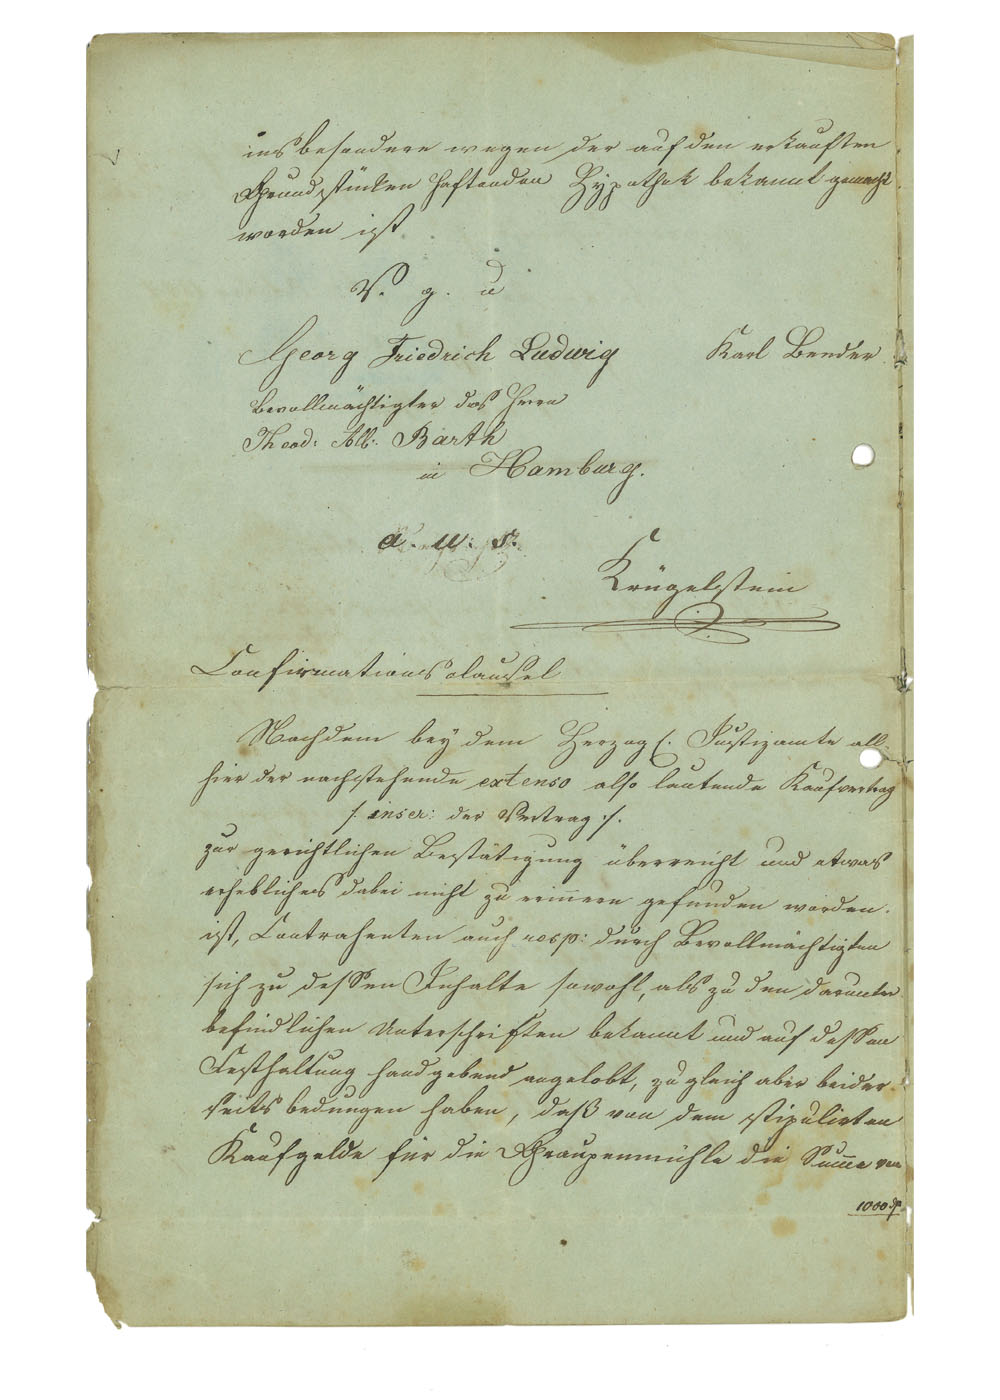 insbesondere wegen der auf den erkauften
Grundstücken haftenden Hypothek bekannt gemacht
worden ist
V. g. u
Georg Friedrich Ludwig Karl Bender
Bevollmächtigter des Herrn
Theod: Alb: Barth
in Hamburg.
a. u. s.
Krügelstein
Confirmationsclausel
Nachdem bey dem Herzogl. Justizamte all-
hier der nachstehende extenso also lautende Kaufvertrag
/: inser: der Vertrag :/.
zur gerichtlichen Bestätigung überreicht und etwas
erhebliches dabei nicht zu erinnern gefunden worden.
ist, Contrahenten auch resp: durch Bevollmächtigten
sich zu dessen Inhalte sowohl, als zu den darunter
befindlichen Unterschriften bekannt und auf dessen
Festhaltung handgebend angelobt, zugleich aber beider-
seits bedungen haben, daß von dem stipulirten
Kaufgelde für die Graupenmühle die Summe von
1000